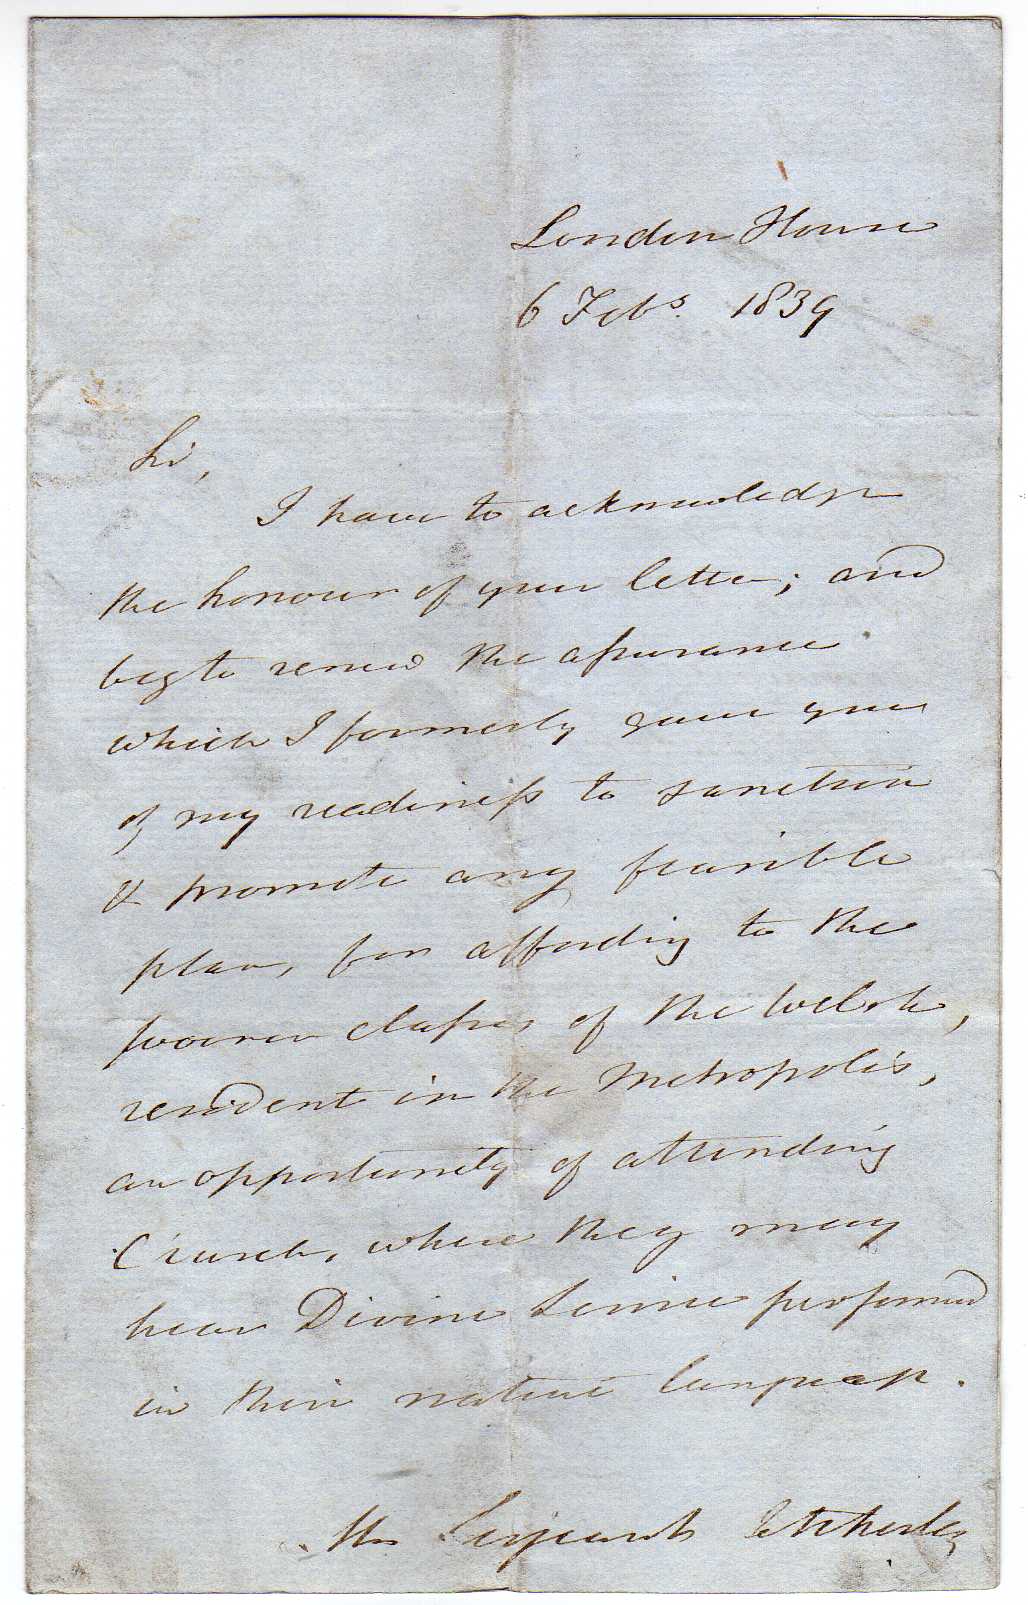 London House
6 Feby. 1839
Sir,
I have to acknowledge
the honour of your letter; and
beg to renew the assurance
which I formerly gave you
of my readiness to sanction
& promote any feasible
plan, for affording to the
poorer classes of the Welsh,
resident in the Metropolis,
an opportunity of attending
Church, where they may
hear Divine Service performed
in their native language.
Mr Serjeant